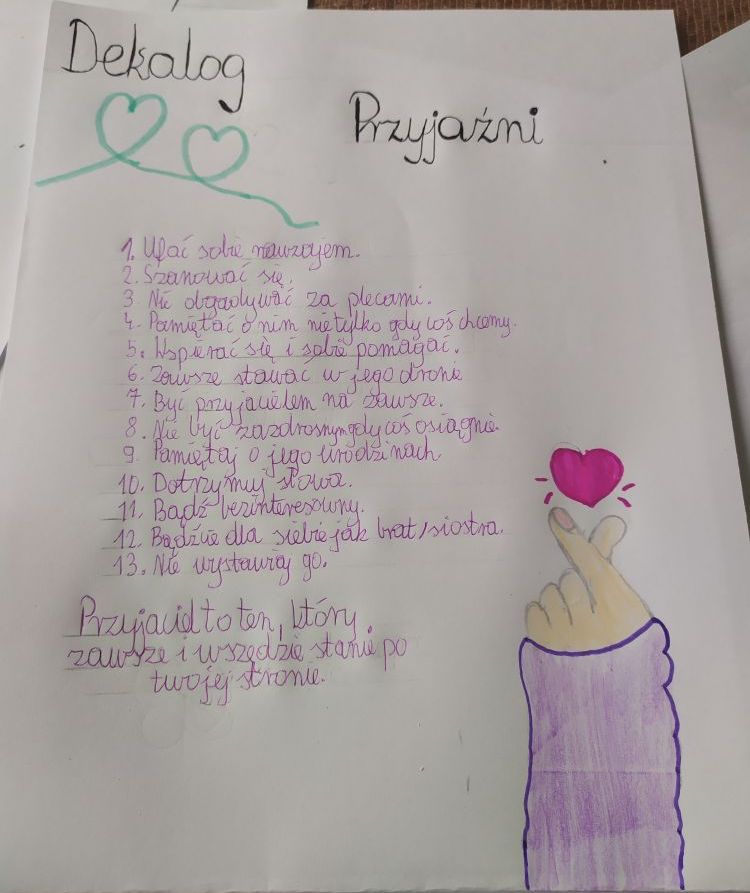 Dekalog
Przyjaźni
1. Ufać sobie nawzajem.
2. Szanować się.
3. Nie obgadywać za plecami.
4. Pamiętać o nim nie tylko gdy coś chcemy.
5. Wspierać się i sobie pomagać.
6. Zawsze stawać w jego
7. Być przyjacielem na zawsze.
8. Nie być zazdrosnym gdy coś osiągnie.
9. Pamiętaj o jego urodzinach
10. Dotrzymuj słowa.
11. Bądź bezinteresowny.
12. Bądźcie dla siebie jak brat/siostra.
13. Nie wystawiaj go.
Przyjaciel to ten, który
zawsze i wszędzie stanie po
twojej stronie.